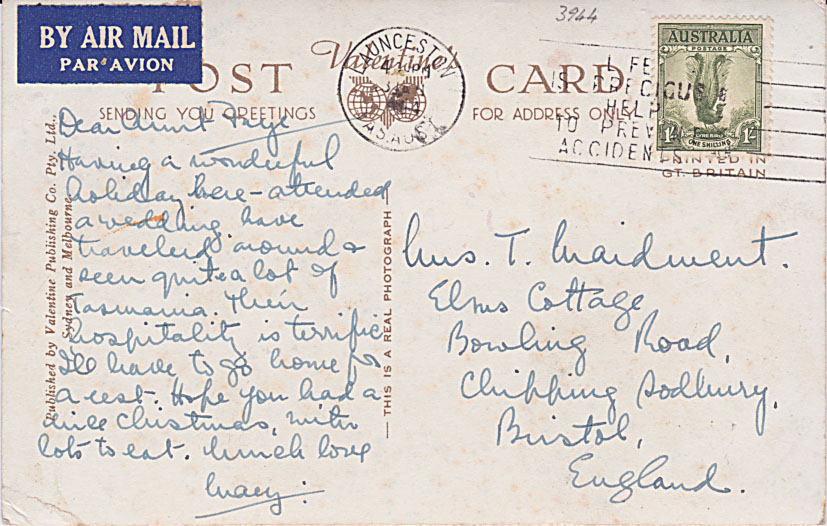 3944
BY AIR MAIL
PAR AVION
POST CARD
Valentine's
SENDING YOU GREETINGS
FOR ADDRESS ONLY
LAUNCESTON
TAS. AUST
LIFE
IS PRECIOUS
HELP
TO PREVENT
ACCIDENTS
AUSTRALIA
POSTAGE
1/- 1/-
LYRE BIRD
ONE SHILLING
PRINTED IN
GT. BRITAIN
Published by Valentine Publishing Co. Pty. Ltd.,
Sydney and Melbourne.
Dear Aunt Faye
Having a wonderful
holiday here - attended
a wedding, have
travelled around &
seen quite a lot of
Tasmania. Their
hospitality is terrific
I'll have to go home for
a rest. Hope you had a
nice Christmas, with
lots to eat. Much love
Macy.
THIS IS A REAL PHOTOGRAPH
Mrs. T. Maidment.
Elms Cottage
Bowling Road,
Chipping Sodbury,
Bristol,
England.